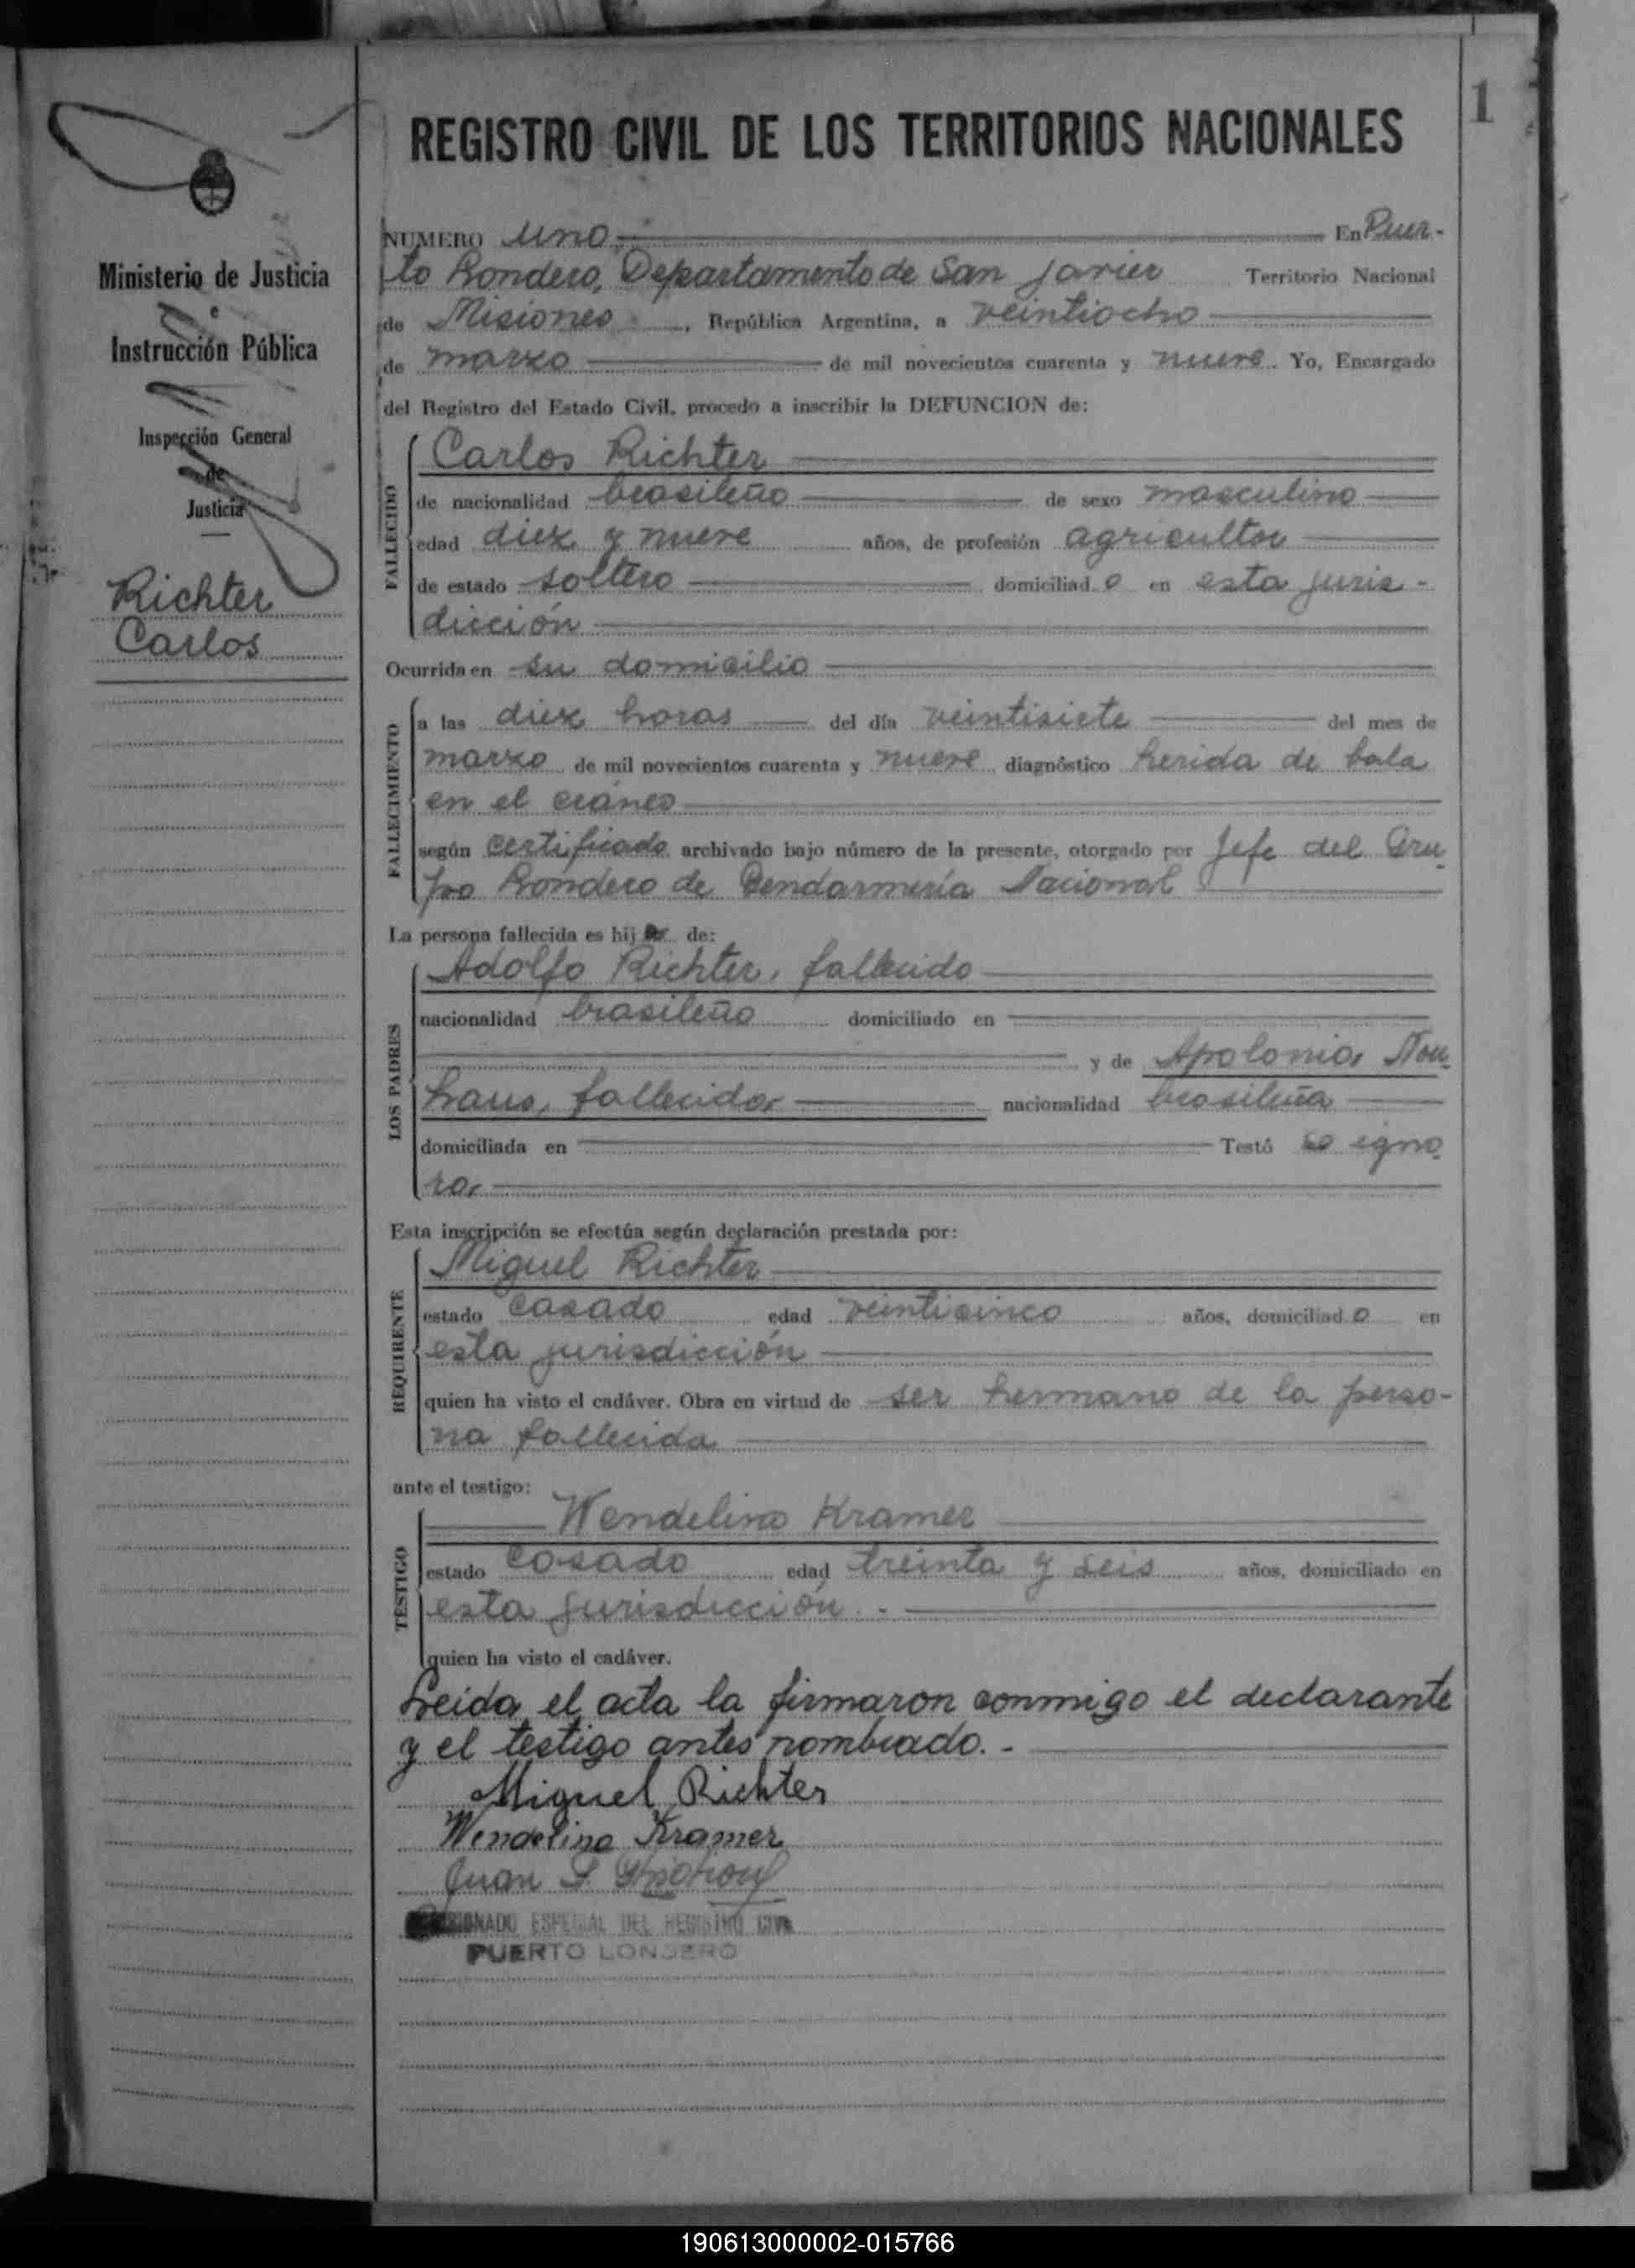 1
REGISTRO CIVIL DE LOS TERRITORIOS NACIONALES
Ministerio de Justicia
e
Instrucción Pública
Inspección General
de
Justicia
Richter
Carlos
NUMERO uno.- En Puer-
to Londero, Departamento de San Javier Territorio Nacional
de Misiones, República Argentina, a veintiocho
de marzo de mil novecientos cuarenta y nueve. Yo, Encargado
del Registro del Estado Civil, procedo a inscribir la DEFUNCION de:
FALLECIDO
Carlos Richter
de nacionalidad brasileño de sexo masculino
edad diez y nueve años, de profesión agricultor
de estado soltero domiciliado en esta juris-
dicción
Ocurrida en su domicilio
FALLECIMIENTO
a las diez horas del día veintisiete del mes de
marzo de mil novecientos cuarenta y nueve diagnóstico herida de bala
en el cráneo
según certificado archivado bajo número de la presente, otorgado por Jefe del Gru
po Londero de Gendarmería Nacional
La persona fallecida es hij de:
LOS PADRES
Adolfo Richter, fallecido
nacionalidad brasileño domiciliado en
y de Apolonia Neu
haus, fallecida nacionalidad brasileña
domiciliada en Testó se igno
ra
Esta inscripción se efectúa según declaración prestada por:
REQUIRENTE
Miguel Richter
estado casado edad veinticinco años, domiciliado en
esta jurisdicción
quien ha visto el cadáver. Obra en virtud de ser hermano de la perso-
na fallecida
ante el testigo:
TESTIGO
Wendelino Kramer
estado casado edad treinta y seis años, domiciliado en
esta jurisdicción.-
quien ha visto el cadáver.
Leida el acta la firmaron conmigo el declarante
y el testigo antes nombrado.-
Miguel Richter
Wendelino Kramer
Juan
ESPECIAL DEL REGISTRO CIVIL
PUERTO LONDERO
190613000002-015766